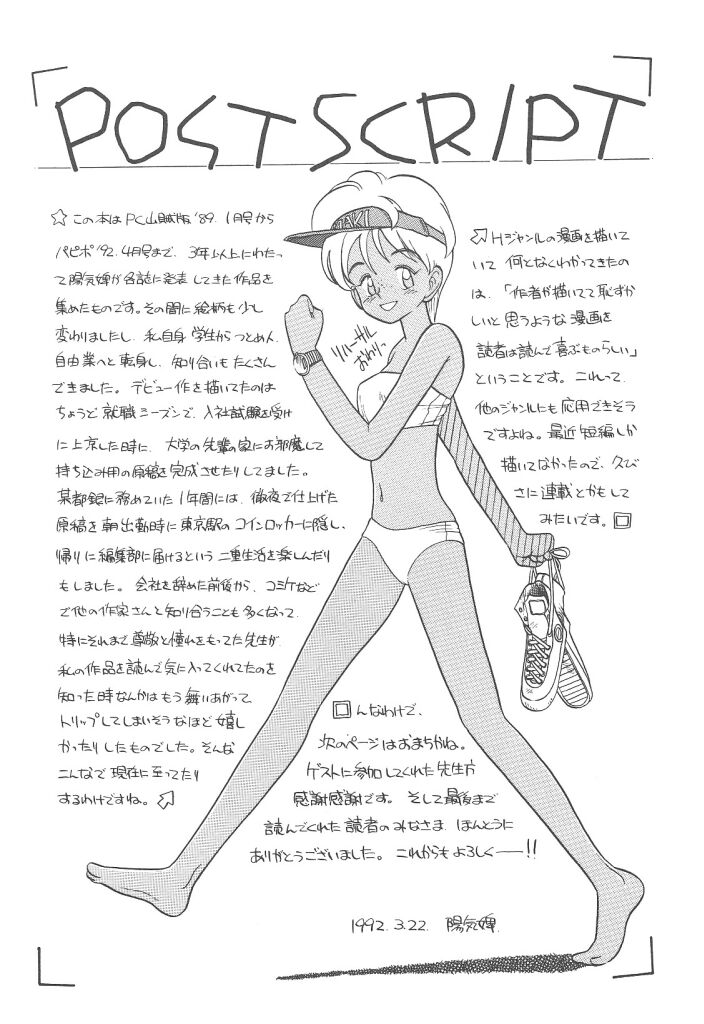 POSTSCRIPT
☆この本はPC山賊版'89. 1月号から
パピポ'92. 4月号まで、3年以上にわたっ
て陽気婢が各誌に発表してきた作品を
集めたものです。その間に絵柄も少し
変わりましたし、私自身 学生からつとめ人、
自由業へと転身し、知り合いもたくさん
できました。デビュー作を描いてたのは
ちょうど就職シーズンで、入社試験を受け
に上京した時に、大学の先輩の家にお邪魔して
持ち込み用の原稿を完成させたりしてました。
某都銀に務めていた1年間には、徹夜で仕上げた
原稿を朝出勤時に東京駅のコインロッカーに隠し、
帰りに編集部に届けるという二重生活を楽しんだり
もしました。会社を辞めた前後から、コミケなど
で他の作家さんと知り合うことも多くなって、
特にそれまで尊敬と憧れをもってた先生が、
私の作品を読んで気に入ってくれてたのを
知った時なんかはもう舞いあがって
トリップしてしまいそうなほど嬉し
かったりしたものでした。そんな
こんなで現在に至ってたり
するわけですね。
Hジャンルの漫画を描いて
いて 何となくわかってきたの
は、「作者が描いてて恥ずか
しいと思うような漫画を
読者は読んで喜ぶものらしい」
ということです。これって、
他のジャンルにも応用できそう
ですよね。最近短編しか
描いてなかったので、久び
さに連載とかもして
みたいです。□
TAKI
リハーサル
おわりっ
□んなわけで、
次のページはおまちかね。
ゲストに参加してくれた先生方
感謝感謝です。そして最後まで
読んでくれた読者のみなさま、ほんとうに
ありがとうございました。これからもよろしくー!!
1992. 3.22. 陽気婢.